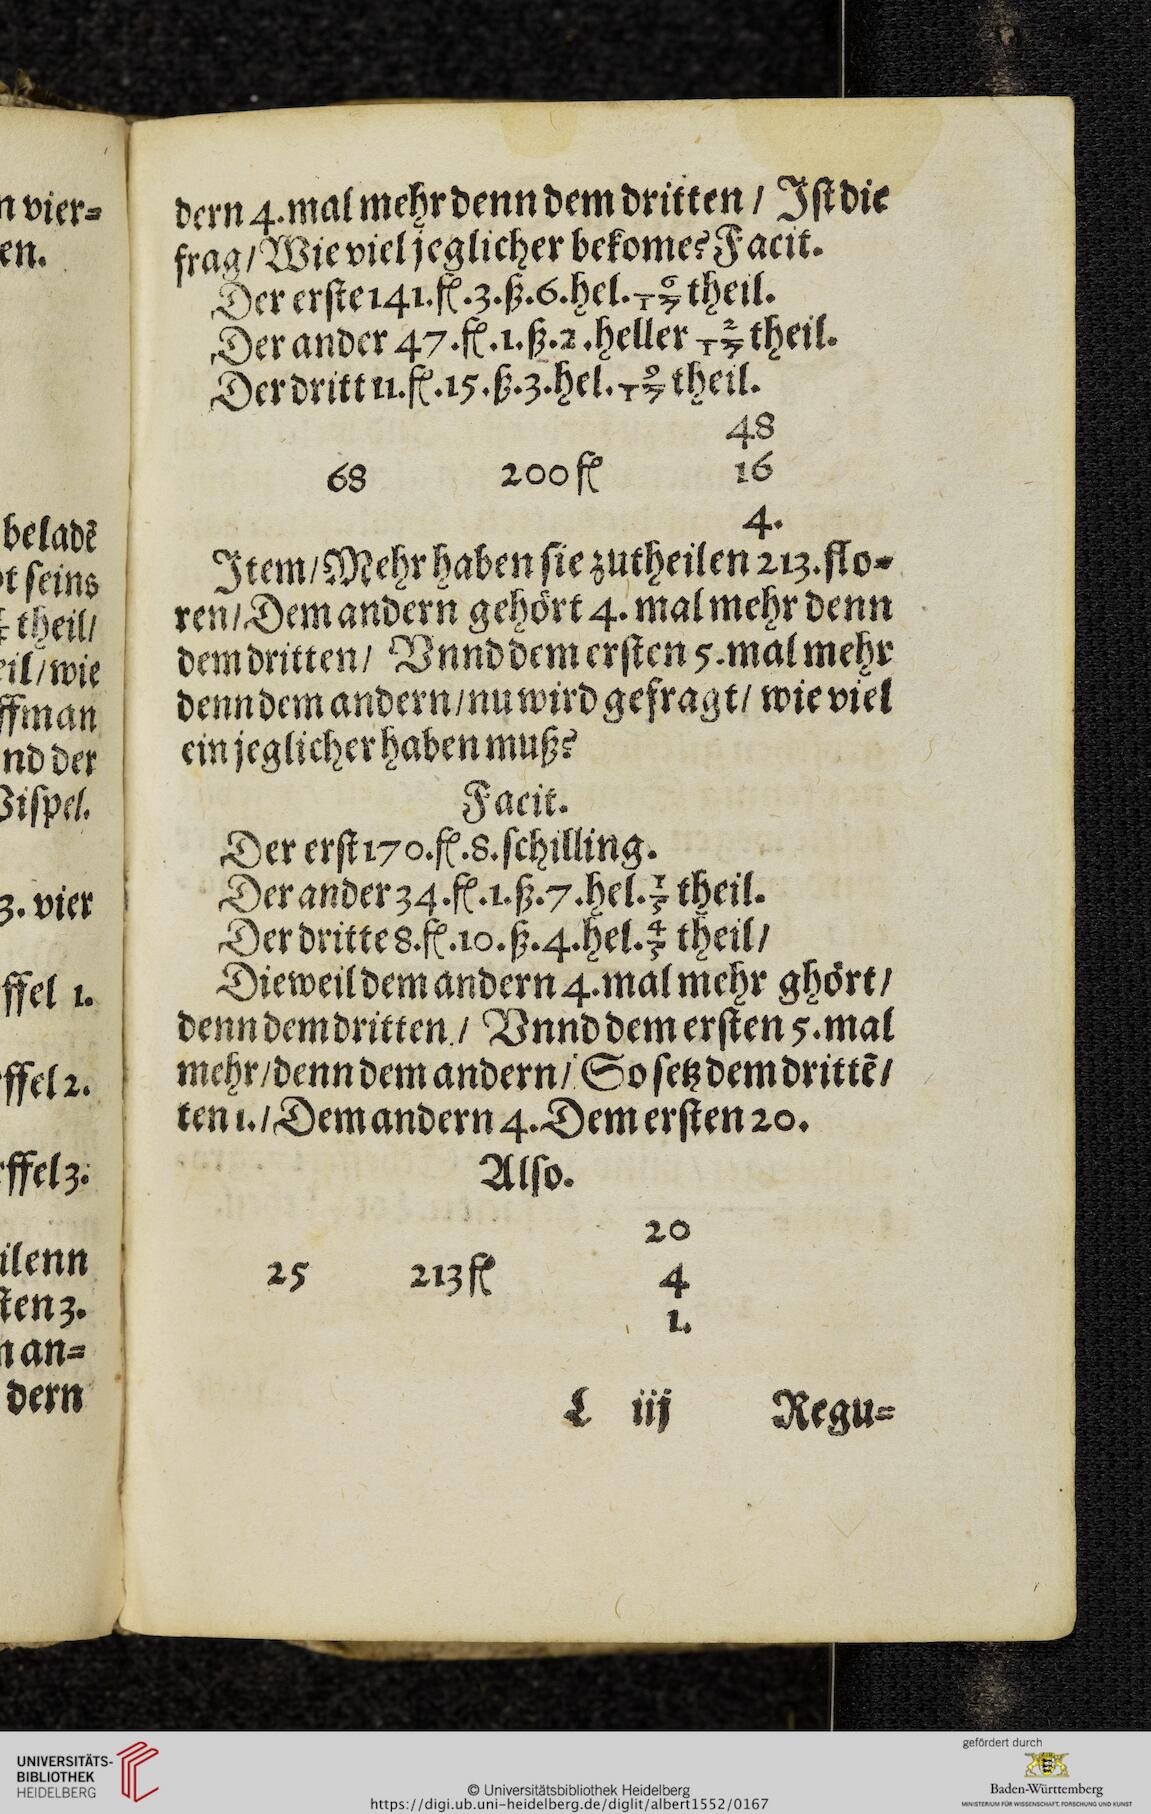 n vier⸗
en.
beladẽ
t seins
theil/
eil/wie
ffman
nd der
Wispel.
3. vier
ffel 1.
ffel 2.
ffel 3.
ilenn
sten 3.
n an⸗
dern
dern 4. mal mehr denn dem dritten / Jst die
frag / Wie viel jeglicher bekome? Facit.
Der erste 141. fl. 3. ß. 6. hel. 6/17 theil.
Der ander 47. fl. 1. ß. 2. heller 2/17 theil.
Der dritt 11. fl. 15. ß. 3. hel. 9/17 theil.
48
68 200 fl 16
4.
Jtem / Mehr haben sie zutheilen 213. flo⸗
ren / Dem andern gehört 4. mal mehr denn
dem dritten / Vnnd dem ersten 5. mal mehr
denn dem andern / nu wird gefragt / wie viel
ein jeglicher haben muß?
Facit.
Der erst 170. fl. 8. schilling.
Der ander 34. fl. 1. ß. 7. hel. 1/5 theil.
Der dritte 8. fl. 10. ß. 4. hel. 4/5 theil /
Dieweil dem andern 4. mal mehr ghört /
denn dem dritten / Vnnd dem ersten 5. mal
mehr / denn dem andern / So setz dem drittẽ /
ten 1. / Dem andern 4. Dem ersten 20.
Also.
20
25 213 fl 4
1.
L iij Regu⸗
UNIVERSITÄTS-
BIBLIOTHEK
HEIDELBERG
© Universitätsbibliothek Heidelberg
https://digi.ub.uni-heidelberg.de/diglit/albert1552/0167
gefördert durch
Baden-Württemberg
MINISTERIUM FÜR WISSENSCHAFT, FORSCHUNG UND KUNST